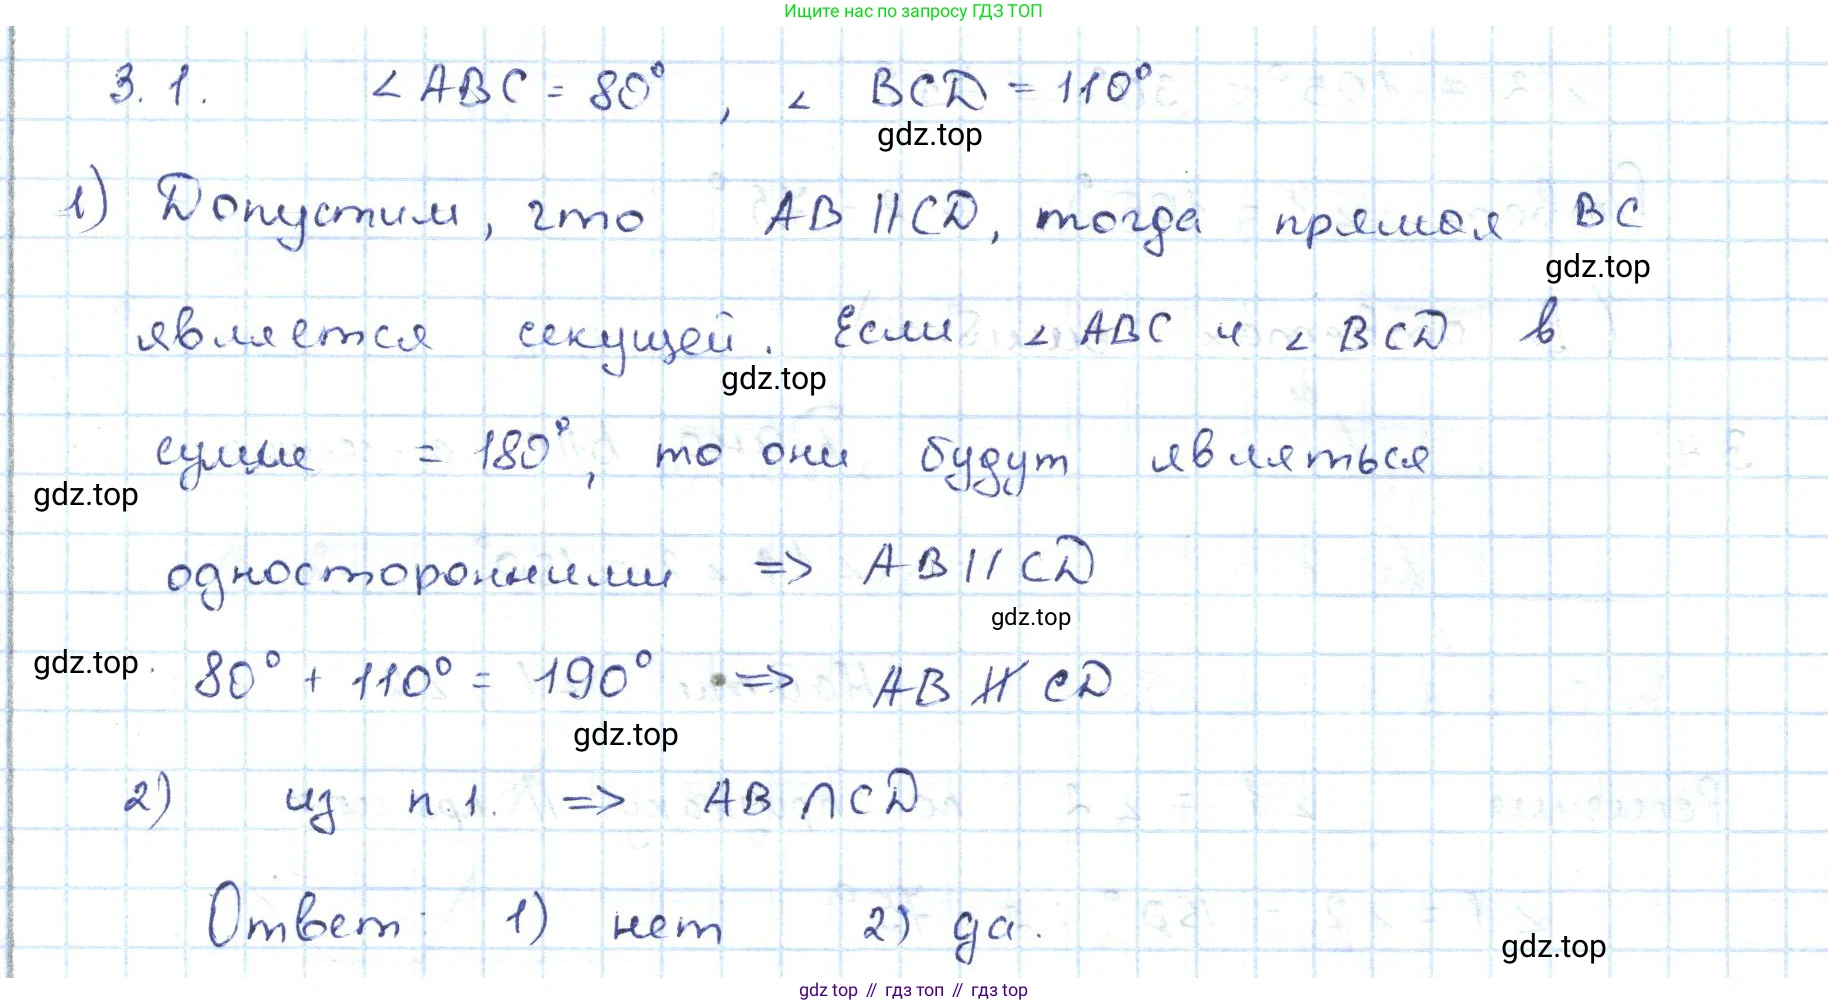 Ищите нас по запросу ГДЗ ТОП
3.1. ∠ABC = 80°, ∠ BCD = 110°
gdz.top
1) Допустим, что AB || CD, тогда прямая BC
gdz.top
является секущей. Если ∠ABC и ∠BCD в
gdz.top
сумме = 180°, то они будут являться
gdz.top
односторонними => AB || CD
gdz.top
gdz.top
80° + 110° = 190° => AB ∦ CD
gdz.top
2) из п.1. => AB ∩ CD
Ответ: 1) нет 2) да.
gdz.top
gdz top // гдз топ // гдз top